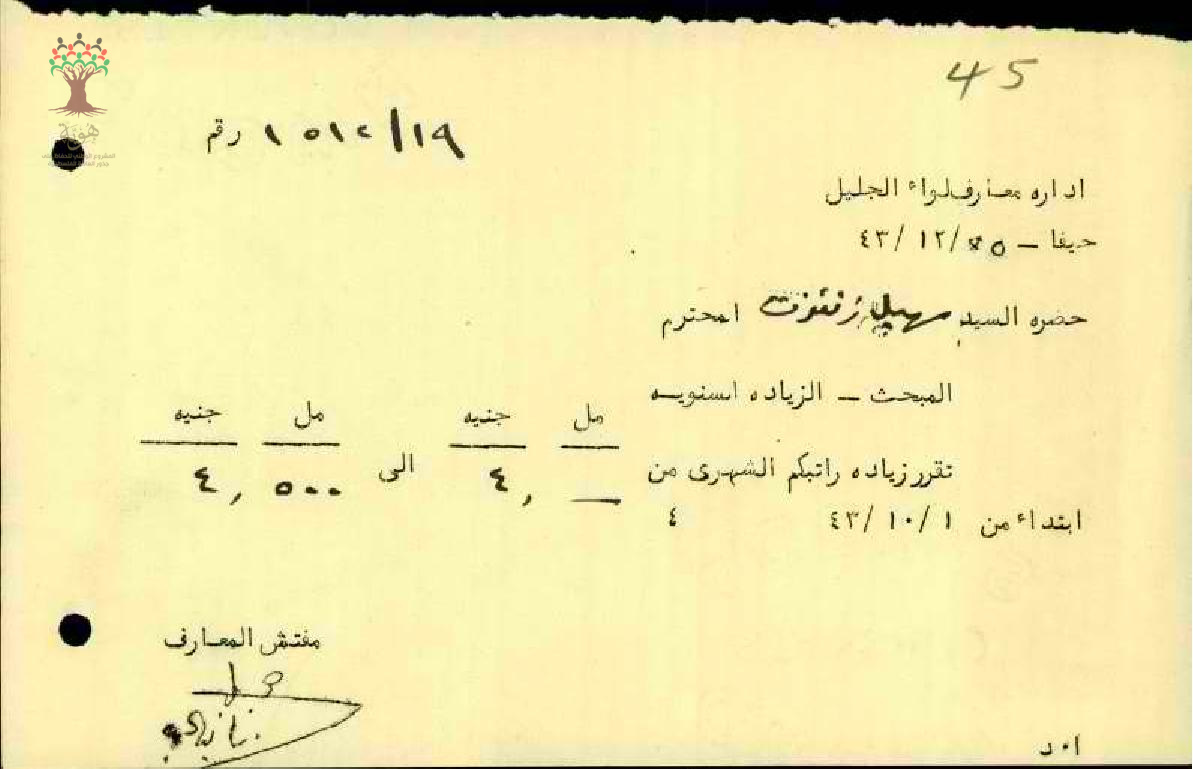 45
هوية
رقم ١٥١٢/١٩
اداره معارف لواء الجليل
حيفا – ٢٥/١٢/٤٣
حضره السيد سهيل المحترم
المبحث – الزياده السنويه
مل جنيه مل جنيه
تقرر زياده راتبكم الشهرى من — ٤, الى ٥٠٠ ٤,
ابتداء من ٤٣/١٠/١ ٤
مفتش المعارف